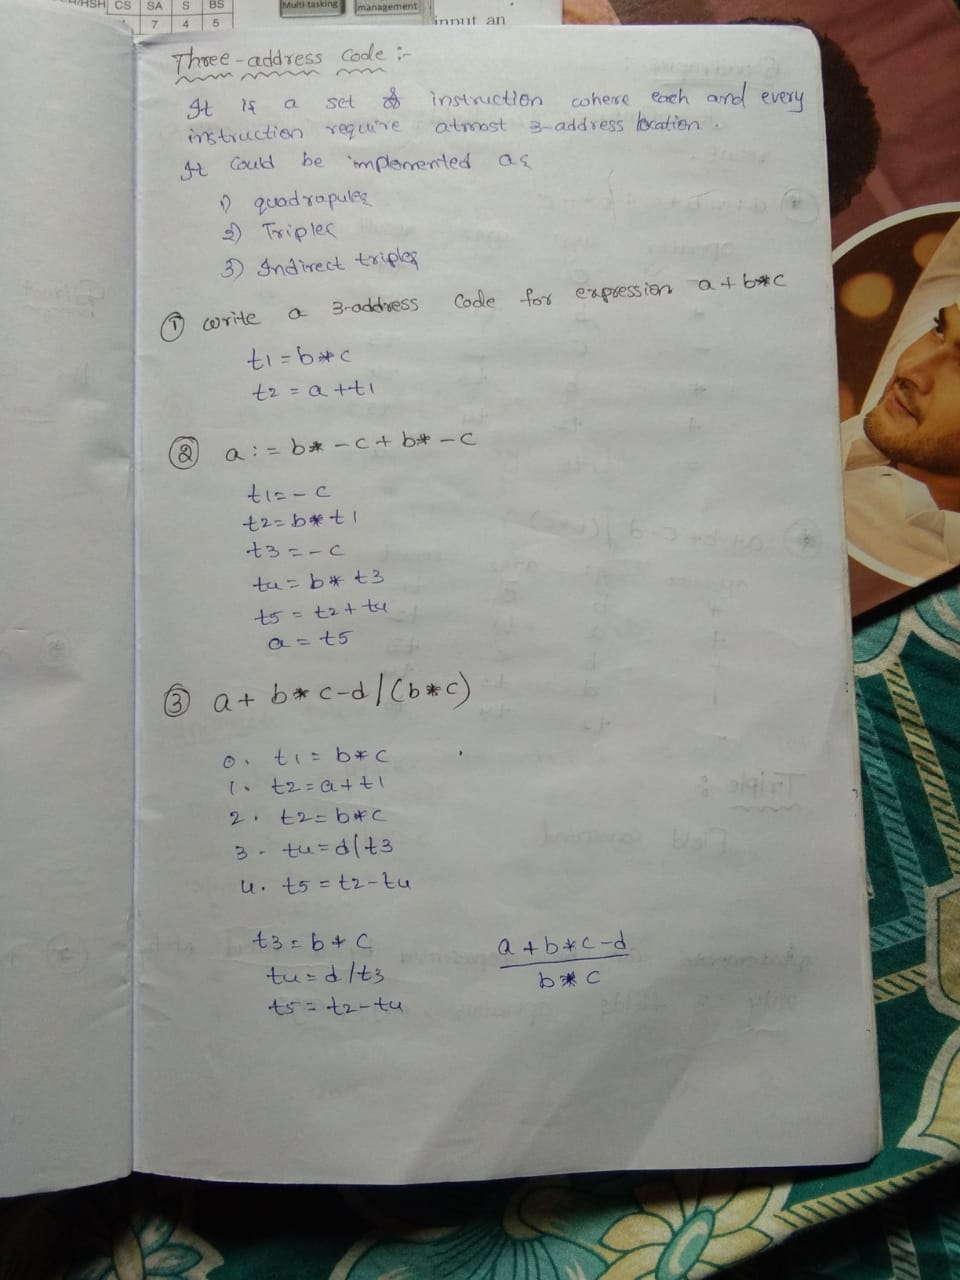 HSH CS SA S BS
7 4 5
Multi-tasking
management
input an
Three-address code :-
It is a set of instruction where each and every
instruction require atmost 3-address location.
It could be implemented as
1) quadrapules
2) Triples
3) Indirect triples
① write a 3-address code for expression a+b*c
t1=b*c
t2 = a+t1
② a:= b*-c+b*-c
t1=-c
t2=b*t1
t3=-c
t4=b*t3
t5=t2+t4
a=t5
③ a+ b*c-d/(b*c)
0. t1=b*c
1. t2=a+t1
2. t2=b*c
3. t4=d/t3
4. t5=t2-t4
t3=b*c
t4=d/t3
t5=t2-t4
a+b*c-d
b*c